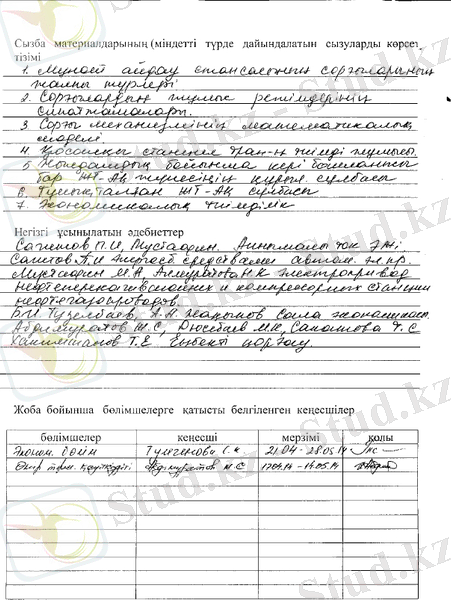 Сызба материалдарының (міндетті түрде дайындалатын сызуларды көрсет.
тізімі
1. Мұнай айдау стансасының сорғыларының
жалпы түрлері
2. Сорғылардың жұмыс режимдерінің
сипаттамалары.
3 Сорғы механизмінің математикалық
моделі
4 Қосалқы станция жұмысы.
5 Жылдамдық бойынша кері байланысы
бар жүйесінің құрыл. сұлбасы
6. Тұйықталған ЖТ-АҚ сұлбасы
7. Экономикалық тиімділік
Негізгі ұсынылатын әдебиеттер
Сагитов П.И, Мустафин. Айнымалы ток
Сагитов П.И
Мустафин М.А, Алмуратова Н.К Электропривод
нефтеперекачивающих и компрессорных станций
нефтегазопроводов.
Б.И Түзелбаев, А.А Жакупов Сала экономикасы
Абдимуратов Ж.С, Дюсебаев М.К, Санатова Т.С
Хакимжанов Т.Е. Еңбекті қорғау.
Жоба бойынша бөлімшелерге қатысты белгіленген кеңесшілер
бөлімшелер кеңесші мерзімі қолы
Эконом. бөлім Тузгенова С.К 21.04 - 28.05.14
Өмір тірш. қауіпсіздігі Абдимуратов Ж.С 17.04.14 - 14.05.14
Stud.kz